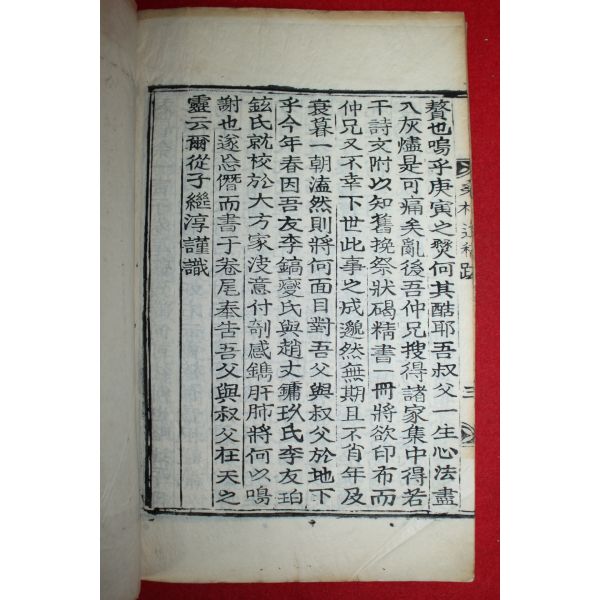 贅也嗚乎庚寅之燹何其酷耶吾叔父一生心法盡
入灰燼是可痛矣亂後吾仲兄搜得諸家集中得若
干詩文附以知舊挽祭狀碣精書一冊將欲印布而
仲兄又不幸下世此事之成邈然無期且不肖年及
衰暮一朝溘然則將何面目對吾父與叔父於地下
乎今年春因吾友李鎬燮氏與趙丈鏞玖氏李友珀
鉉氏就校於大方家波意付剞感鐫肝肺將何以鳴
謝也遂忘僭而書于卷尾奉告吾父與叔父在天之
靈云爾從子繼淳謹識
村遺稿跋
三